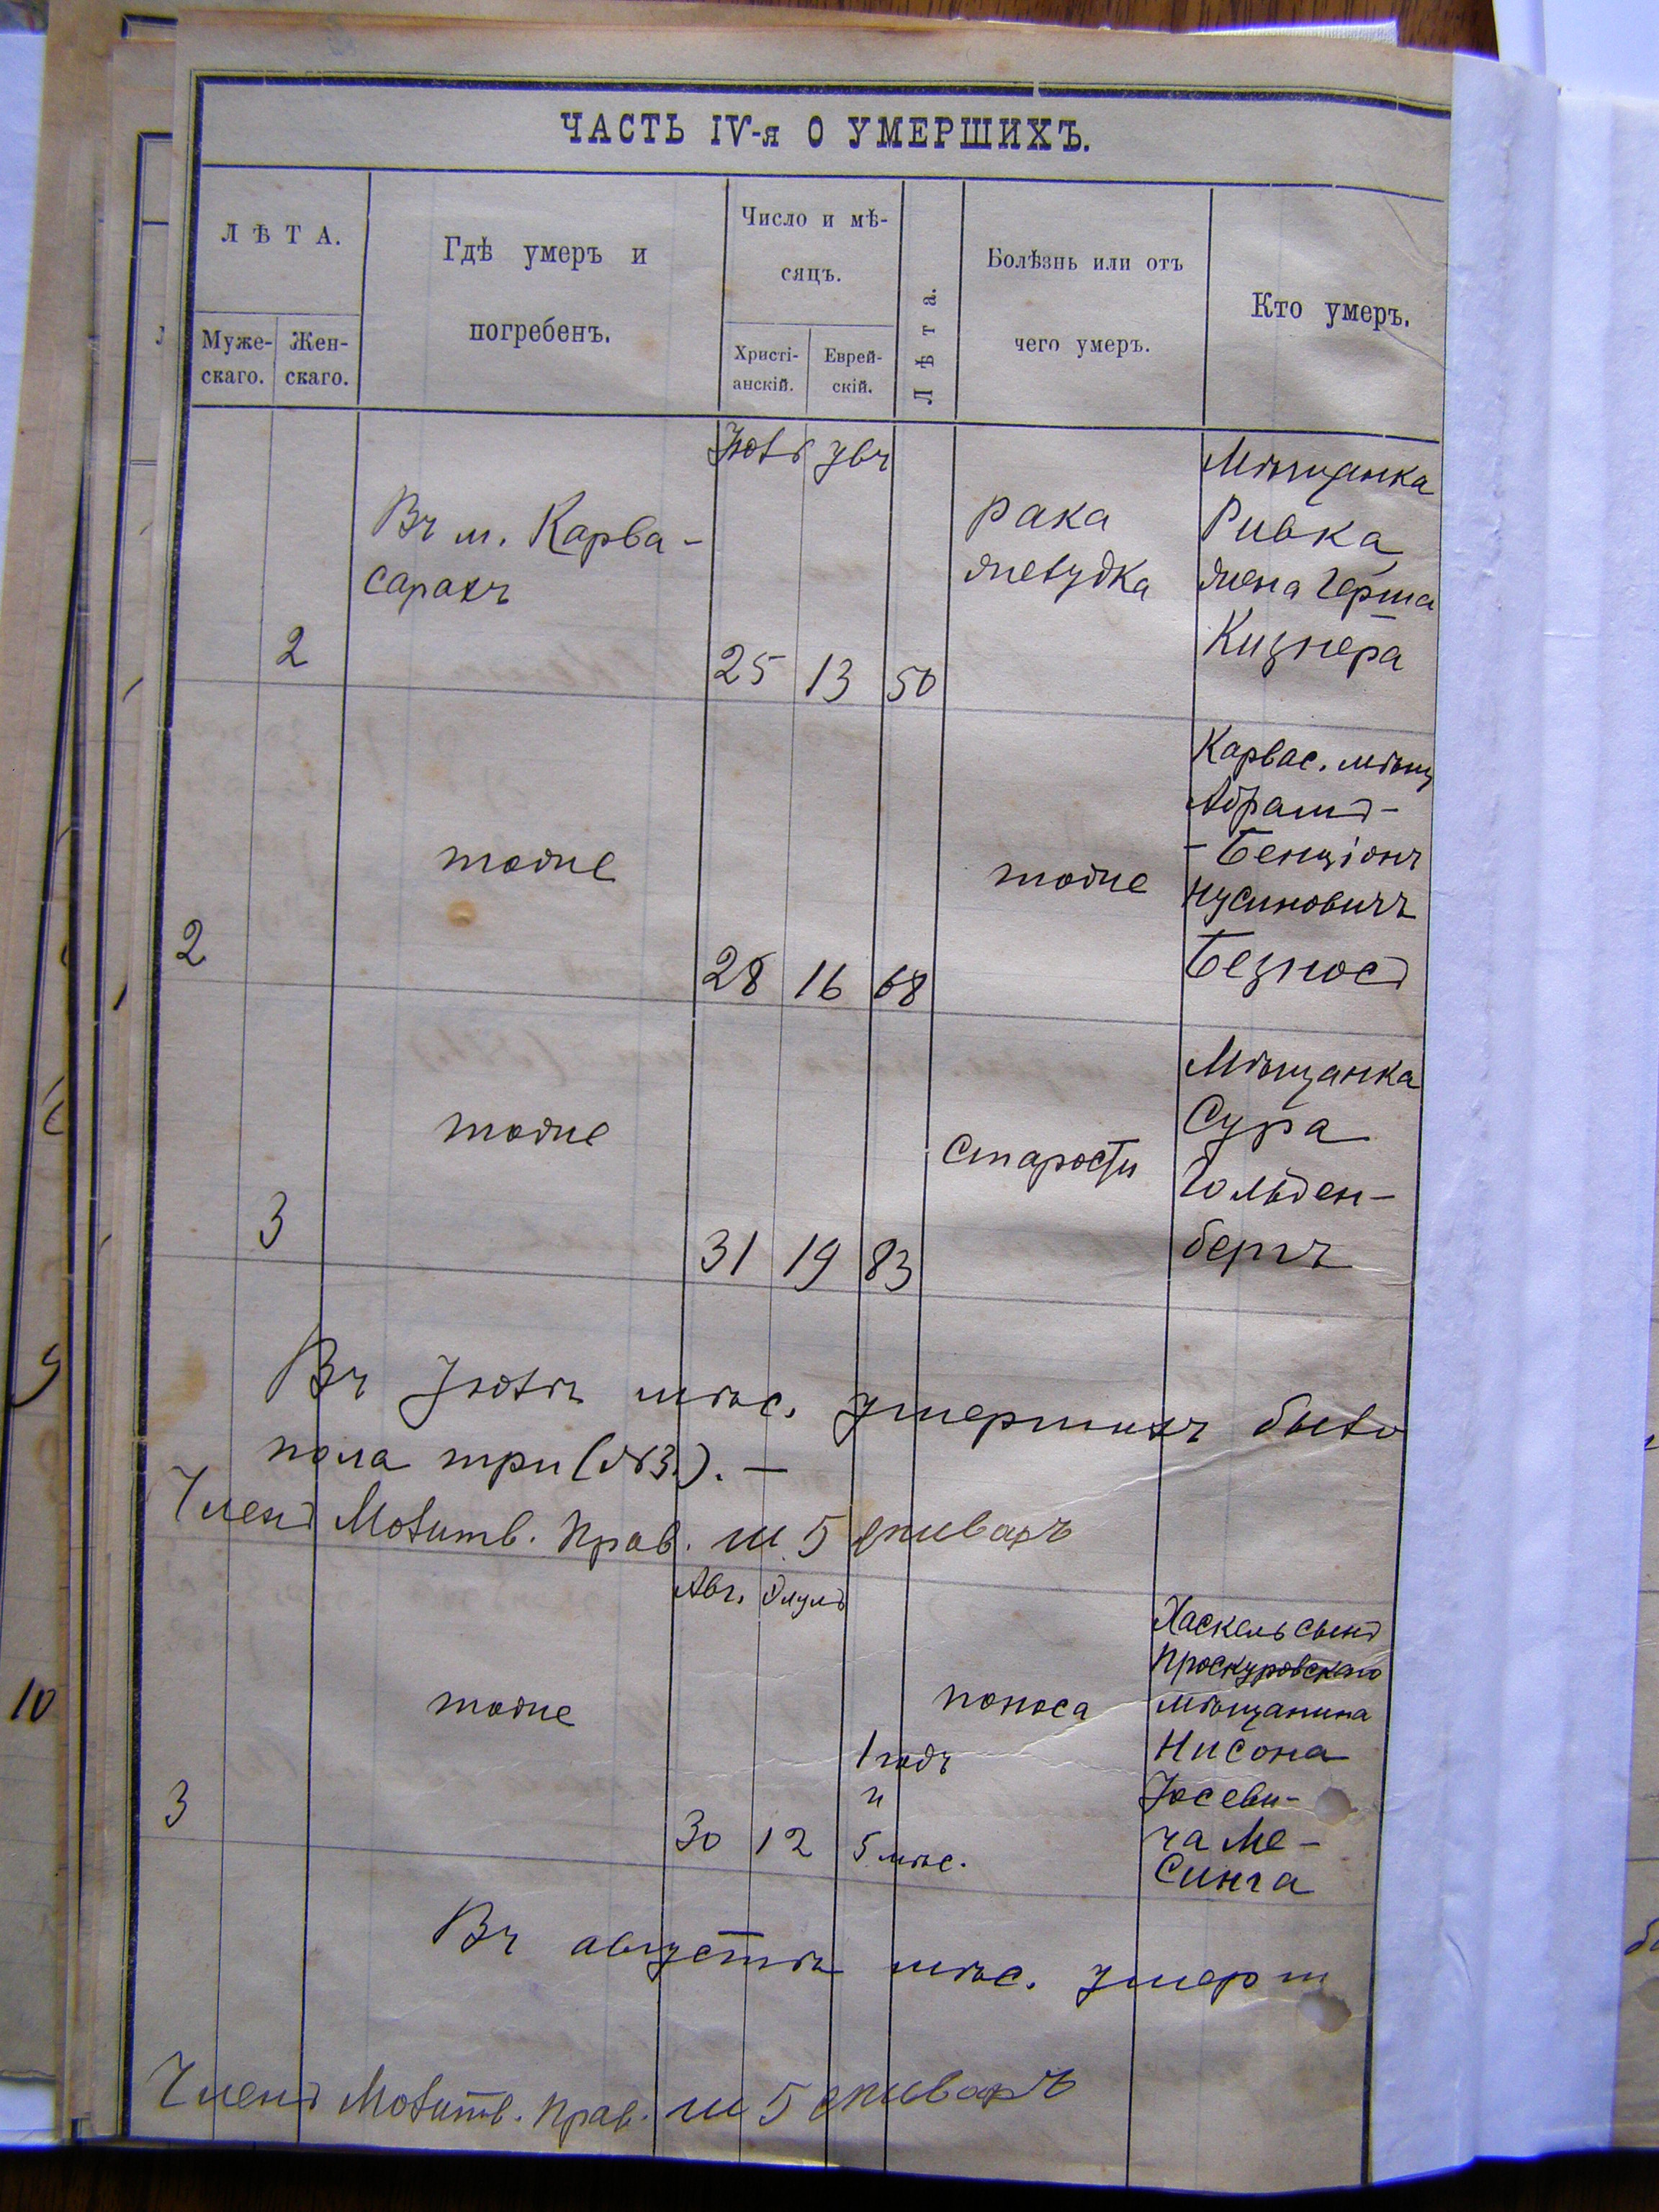 ЧАСТЬ IV-я О УМЕРШИХЪ.
ЛѢТА.
Муже-
скаго.
Жен-
скаго.
Гдѣ умеръ и
погребенъ.
Число и мѣ-
сяцъ.
Христі-
анскій.
Еврей-
скій.
Лѣта.
Болѣзнь или отъ
чего умеръ.
Кто умеръ.
2
Въ м. Карва-
сарахъ
25
13
50
рака
желудка
Мѣщанка
Ривка
жена Герша
Кизнера
2
тоже
28
16
68
тоже
Карвас. мѣщ
Абрамъ-
-Бенціонъ
Нусиновичъ
Безносъ
3
тоже
31
19
83
старости
Мѣщанка
Сура
Гольден-
бергъ
Въ Іюлѣ мѣс. умершихъ было
пола три (№3.). —
Членъ Молитв. Прав.
3
тоже
Авг.
30
Элулъ
12
1 годъ
и
5 мѣс.
поноса
Хаскель сынъ
Проскуровскаго
мѣщанина
Нисона
Іосеви-
ча Ме-
синга
Въ августѣ мѣс. умерш
Членъ Молитв. Прав.
9
10